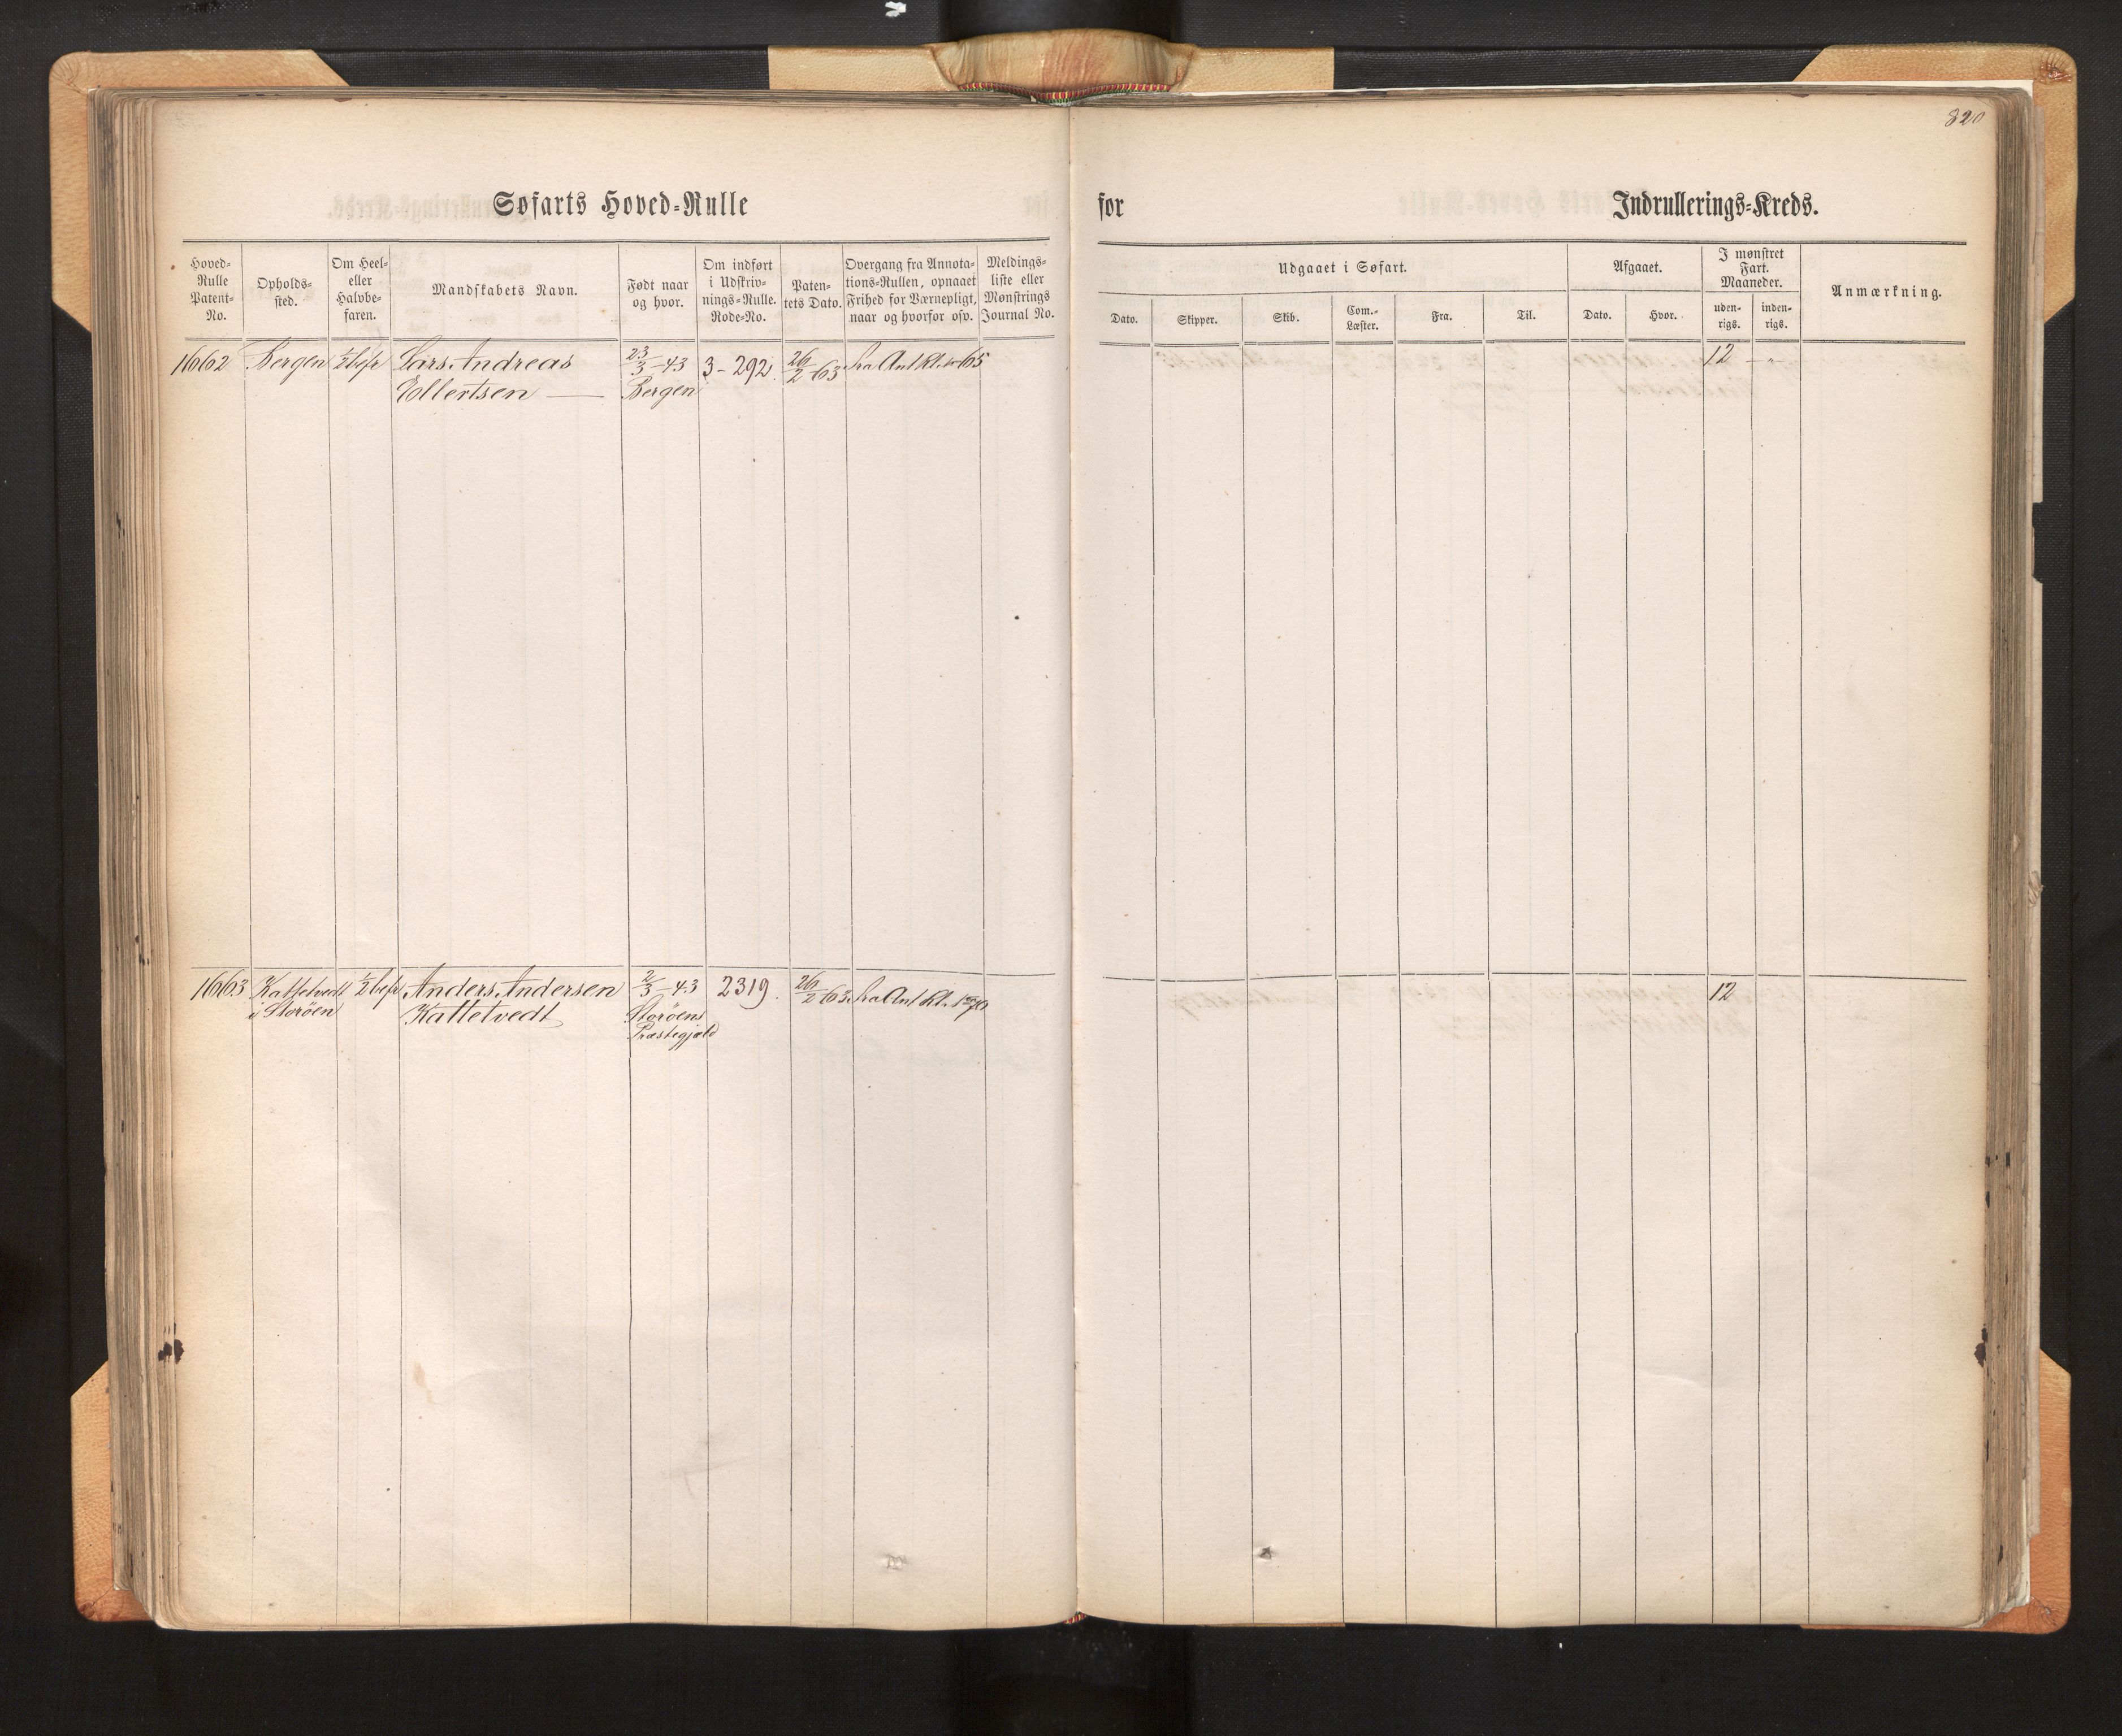 820
Søfarts Hoved-Rulle for Indrullerings-Kreds.
Hoved-
Rulle
Patent-
No.
Opholds-
sted.
Om Heel-
eller
Halvbe-
faren.
Mandskabets Navn.
Født naar
og hvor.
Om indført
i Udskriv-
nings-Rulle.
Rode-No.
Paten-
tets Dato.
Overgang fra Annota-
tions-Rullen, opnaaet
Frihed for Værnepligt,
naar og hvorfor osv.
Meldings-
liste eller
Mønstrings
Journal No.
Udgaaet i Søfart.
Dato.
Skipper.
Skib.
Com.-
Læster.
Fra.
Til.
Afgaaet.
Dato.
Hvor.
I mønstret
Fart.
Maaneder.
uden-
rigs.
inden-
rigs.
Anmærkning.
1662 Bergen 1/2 befr Lars Andreas 23/3-43 3-292 26/2-63 fra Ant Rl. 65 12 - „
Ellertsen — Bergen
1663 Kattetvedt 1/2 befr Anders Andersen 2/3-43 2319. 26/2-63 fra Ant Rl. 12
i Storöen Kattetvedt Storöens
Præstegjæld